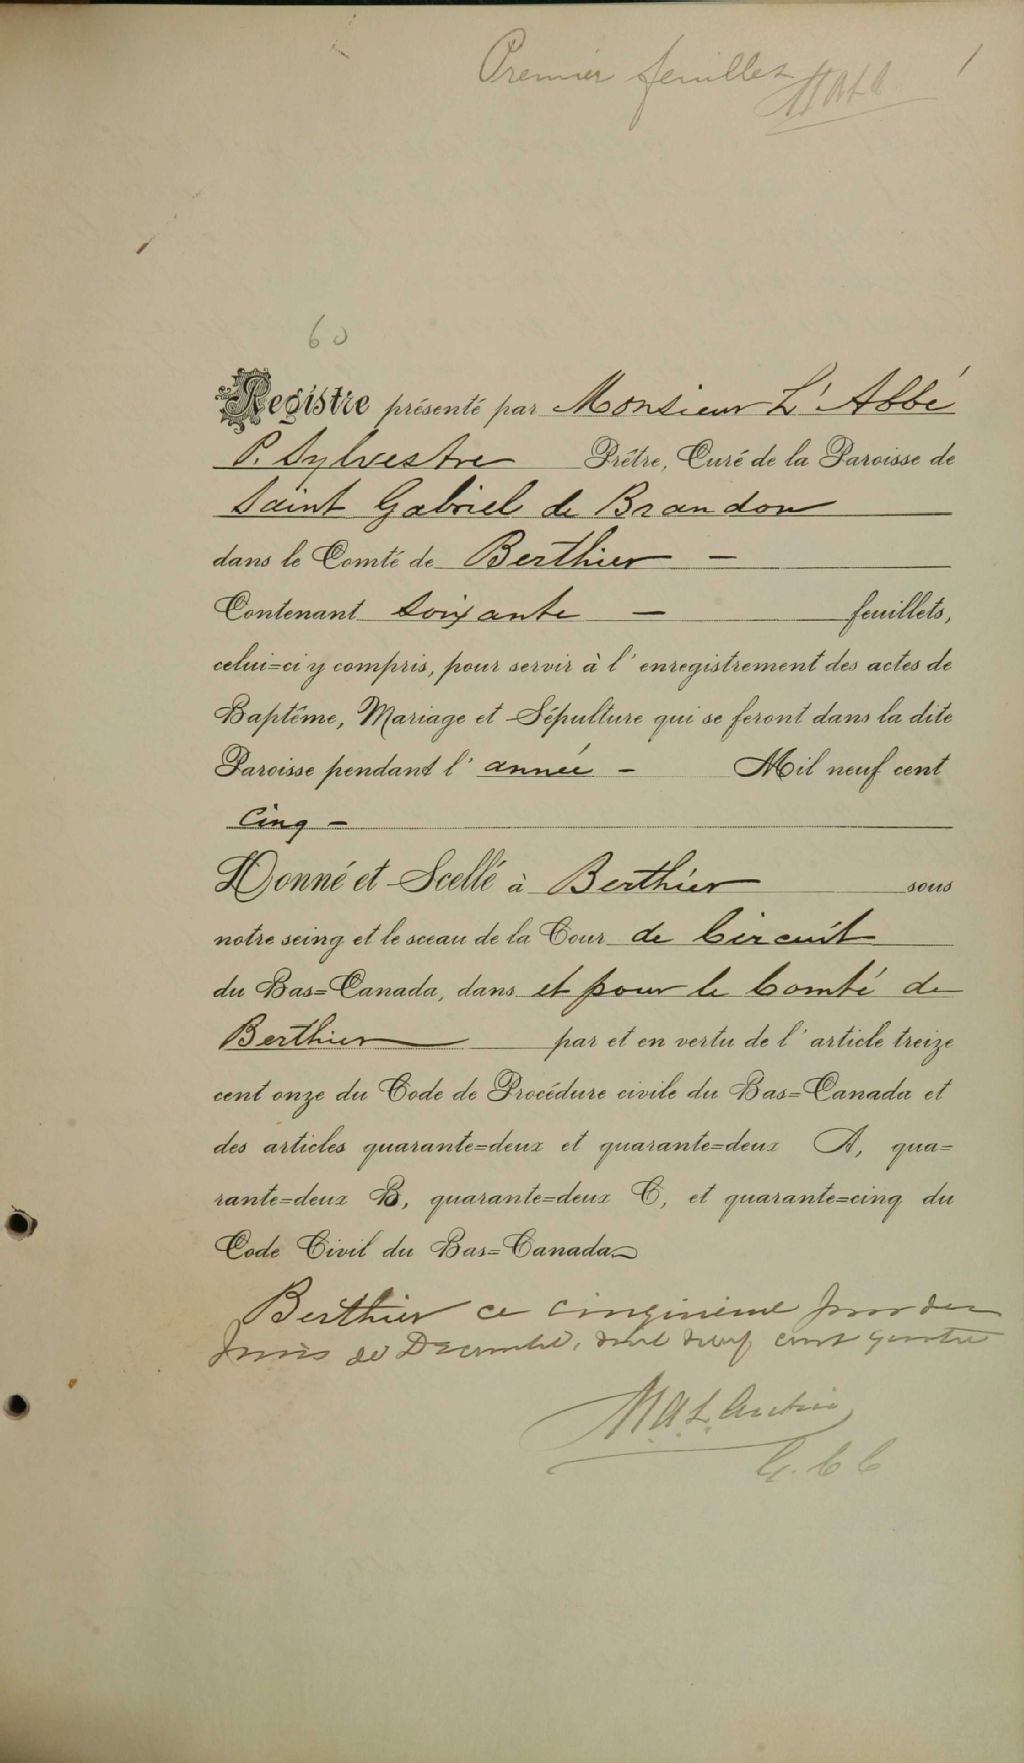 Premier feuillet 1
60
Registre présenté par Monsieur L'Abbé
P. Sylvestre Prêtre, Curé de la Paroisse de
Saint Gabriel de Brandon
dans le Comté de Berthier –
Contenant Soixante – feuillets,
celui=ci y compris, pour servir à l'enregistrement des actes de
Baptême, Mariage et Sépulture qui se feront dans la dite
Paroisse pendant l'année – Mil neuf cent
Cinq –
Donné et Scellé à Berthier sous
notre seing et le sceau de la Cour de Circuit
du Bas=Canada, dans et pour le Comté de
Berthier par et en vertu de l'article treize
cent onze du Code de Procédure civile du Bas=Canada et
des articles quarante=deux et quarante=deux A, qua=
rante=deux B, quarante=deux C, et quarante=cinq du
Code Civil du Bas=Canada
Berthier ce cinquième jour du
mois de Décembre, mil neuf cent quatre
M.A.L.
C.C.